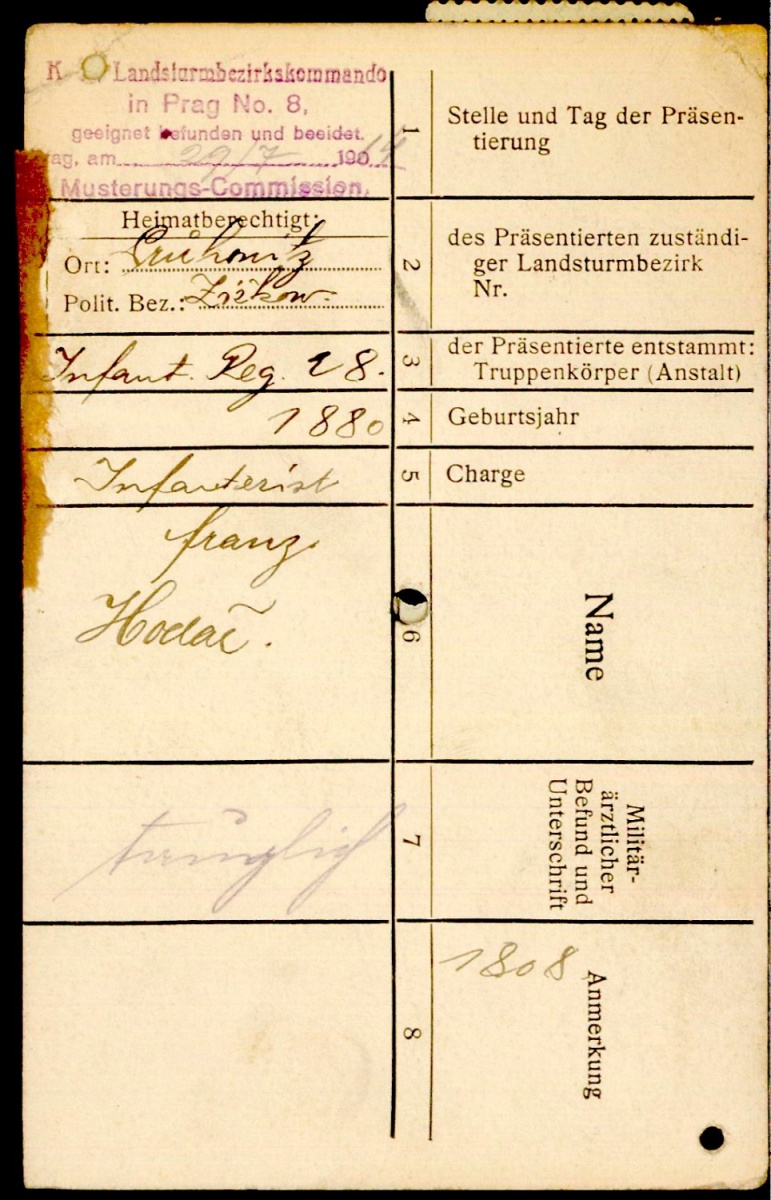 K. Landsturmbezirkskommando
in Prag No. 8,
geeignet befunden und beeidet.
ag, am 29/7 190 14
Musterungs-Commission.
1
Stelle und Tag der Präsen-
tierung
Heimatberechtigt:
Ort:
Polit. Bez.: Žižkow
2
des Präsentierten zuständi-
ger Landsturmbezirk
Nr.
Infant. Reg. 28.
3
der Präsentierte entstammt:
Truppenkörper (Anstalt)
1880
4
Geburtsjahr
Infanterist
5
Charge
Franz
Hodač.
6
Name
tauglich
7
Militär-
ärztlicher
Befund und
Unterschrift
8
1808
Anmerkung